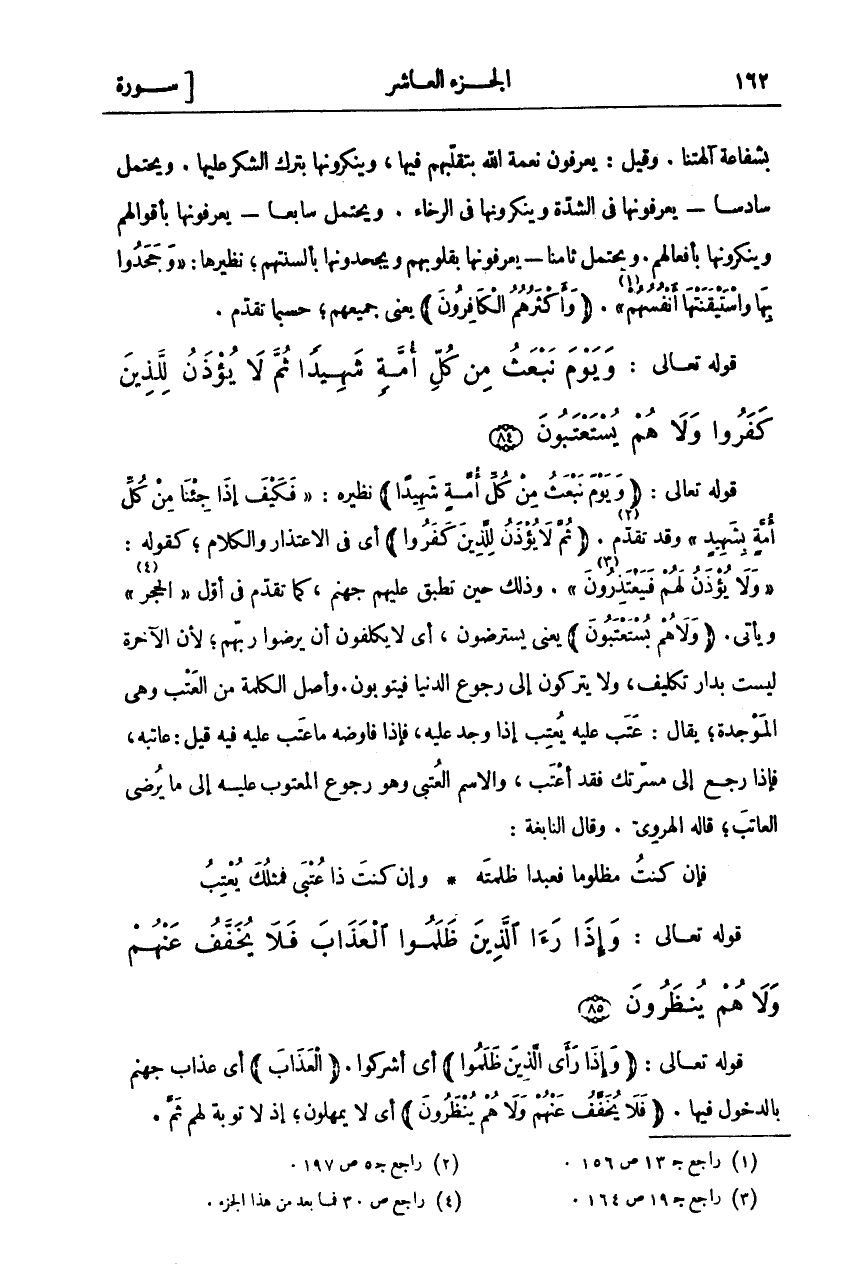 ١٦٢ الجزء العاشر [ سورة
بشفاعة آلهتنا . وقيل : يعرفون نعمة الله بتقلّبهم فيها ، وينكرونها بترك الشكر عليها . ويحتمل
سادسا — يعرفونها فى الشدّة وينكرونها فى الرخاء . ويحتمل سابعا — يعرفونها بأقوالهم
وينكرونها بأفعالهم . ويحتمل ثامنا — يعرفونها بقلوبهم ويجحدونها بألسنتهم ؛ نظيرها : «وَجَحَدُوا
بِهَا وَاسْتَيْقَنَتْهَا أَنْفُسُهُمْ(١)» . ﴿ وَأَكْثَرُهُمُ الْكَافِرُونَ ﴾ يعنى جميعهم ؛ حسبما تقدّم .
قوله تعالى : وَيَوْمَ نَبْعَثُ مِن كُلِّ أُمَّةٍ شَهِيدًا ثُمَّ لَا يُؤْذَنُ لِلَّذِينَ
كَفَرُوا وَلَا هُمْ يُسْتَعْتَبُونَ ٨٤
قوله تعالى : ﴿ وَيَوْمَ نَبْعَثُ مِنْ كُلِّ أُمَّةٍ شَهِيدًا ﴾ نظيره : « فَكَيْفَ إِذَا جِئْنَا مِنْ كُلِّ
أُمَّةٍ بِشَهِيدٍ » وقد تقدّم(٢) . ﴿ ثُمَّ لَا يُؤْذَنُ لِلَّذِينَ كَفَرُوا ﴾ أى فى الاعتذار والكلام ؛ كقوله :
« وَلَا يُؤْذَنُ لَهُمْ فَيَعْتَذِرُونَ(٣) » . وذلك حين تطبق عليهم جهنم ، كما تقدّم فى أوّل « الحجر(٤) »
ويأتى . ﴿ وَلَا هُمْ يُسْتَعْتَبُونَ ﴾ يعنى يسترضون ، أى لا يكلفون أن يرضوا ربّهم ؛ لأن الآخرة
ليست بدار تكليف ، ولا يتركون إلى رجوع الدنيا فيتوبون . وأصل الكلمة من العَتْب وهى
المَوْجدة ؛ يقال : عَتَب عليه يُعتِب إذا وجد عليه ، فإذا فاوضه ما عتَب عليه فيه قيل : عاتبه ،
فإذا رجع إلى مسرّتك فقد أعْتَب ، والاسم العُتبى وهو رجوع المعتوب عليه إلى ما يُرضى
العاتبَ ؛ قاله الهروىّ . وقال النابغة :
فإن كنتُ مظلوما فعبدا ظلمتَه * وإن كنتَ ذا عُتْبَى فمثلُكَ يُعْتِبُ
قوله تعالى : وَإِذَا رَءَا ٱلَّذِينَ ظَلَمُوا ٱلْعَذَابَ فَلَا يُخَفَّفُ عَنْهُمْ
وَلَا هُمْ يُنظَرُونَ ٨٥
قوله تعالى : ﴿ وَإِذَا رَأَى الَّذِينَ ظَلَمُوا ﴾ أى أشركوا . ﴿ الْعَذَابَ ﴾ أى عذاب جهنم
بالدخول فيها . ﴿ فَلَا يُخَفَّفُ عَنْهُمْ وَلَا هُمْ يُنْظَرُونَ ﴾ أى لا يمهلون ؛ إذ لا توبة لهم ثَمَّ .
(١) راجع جـ ١٣ ص ١٥٦ . (٢) راجع جـ ٥ ص ١٩٧ .
(٣) راجع جـ ١٩ ص ١٦٤ . (٤) راجع ص ٣٠ فما بعد من هذا الجزء .